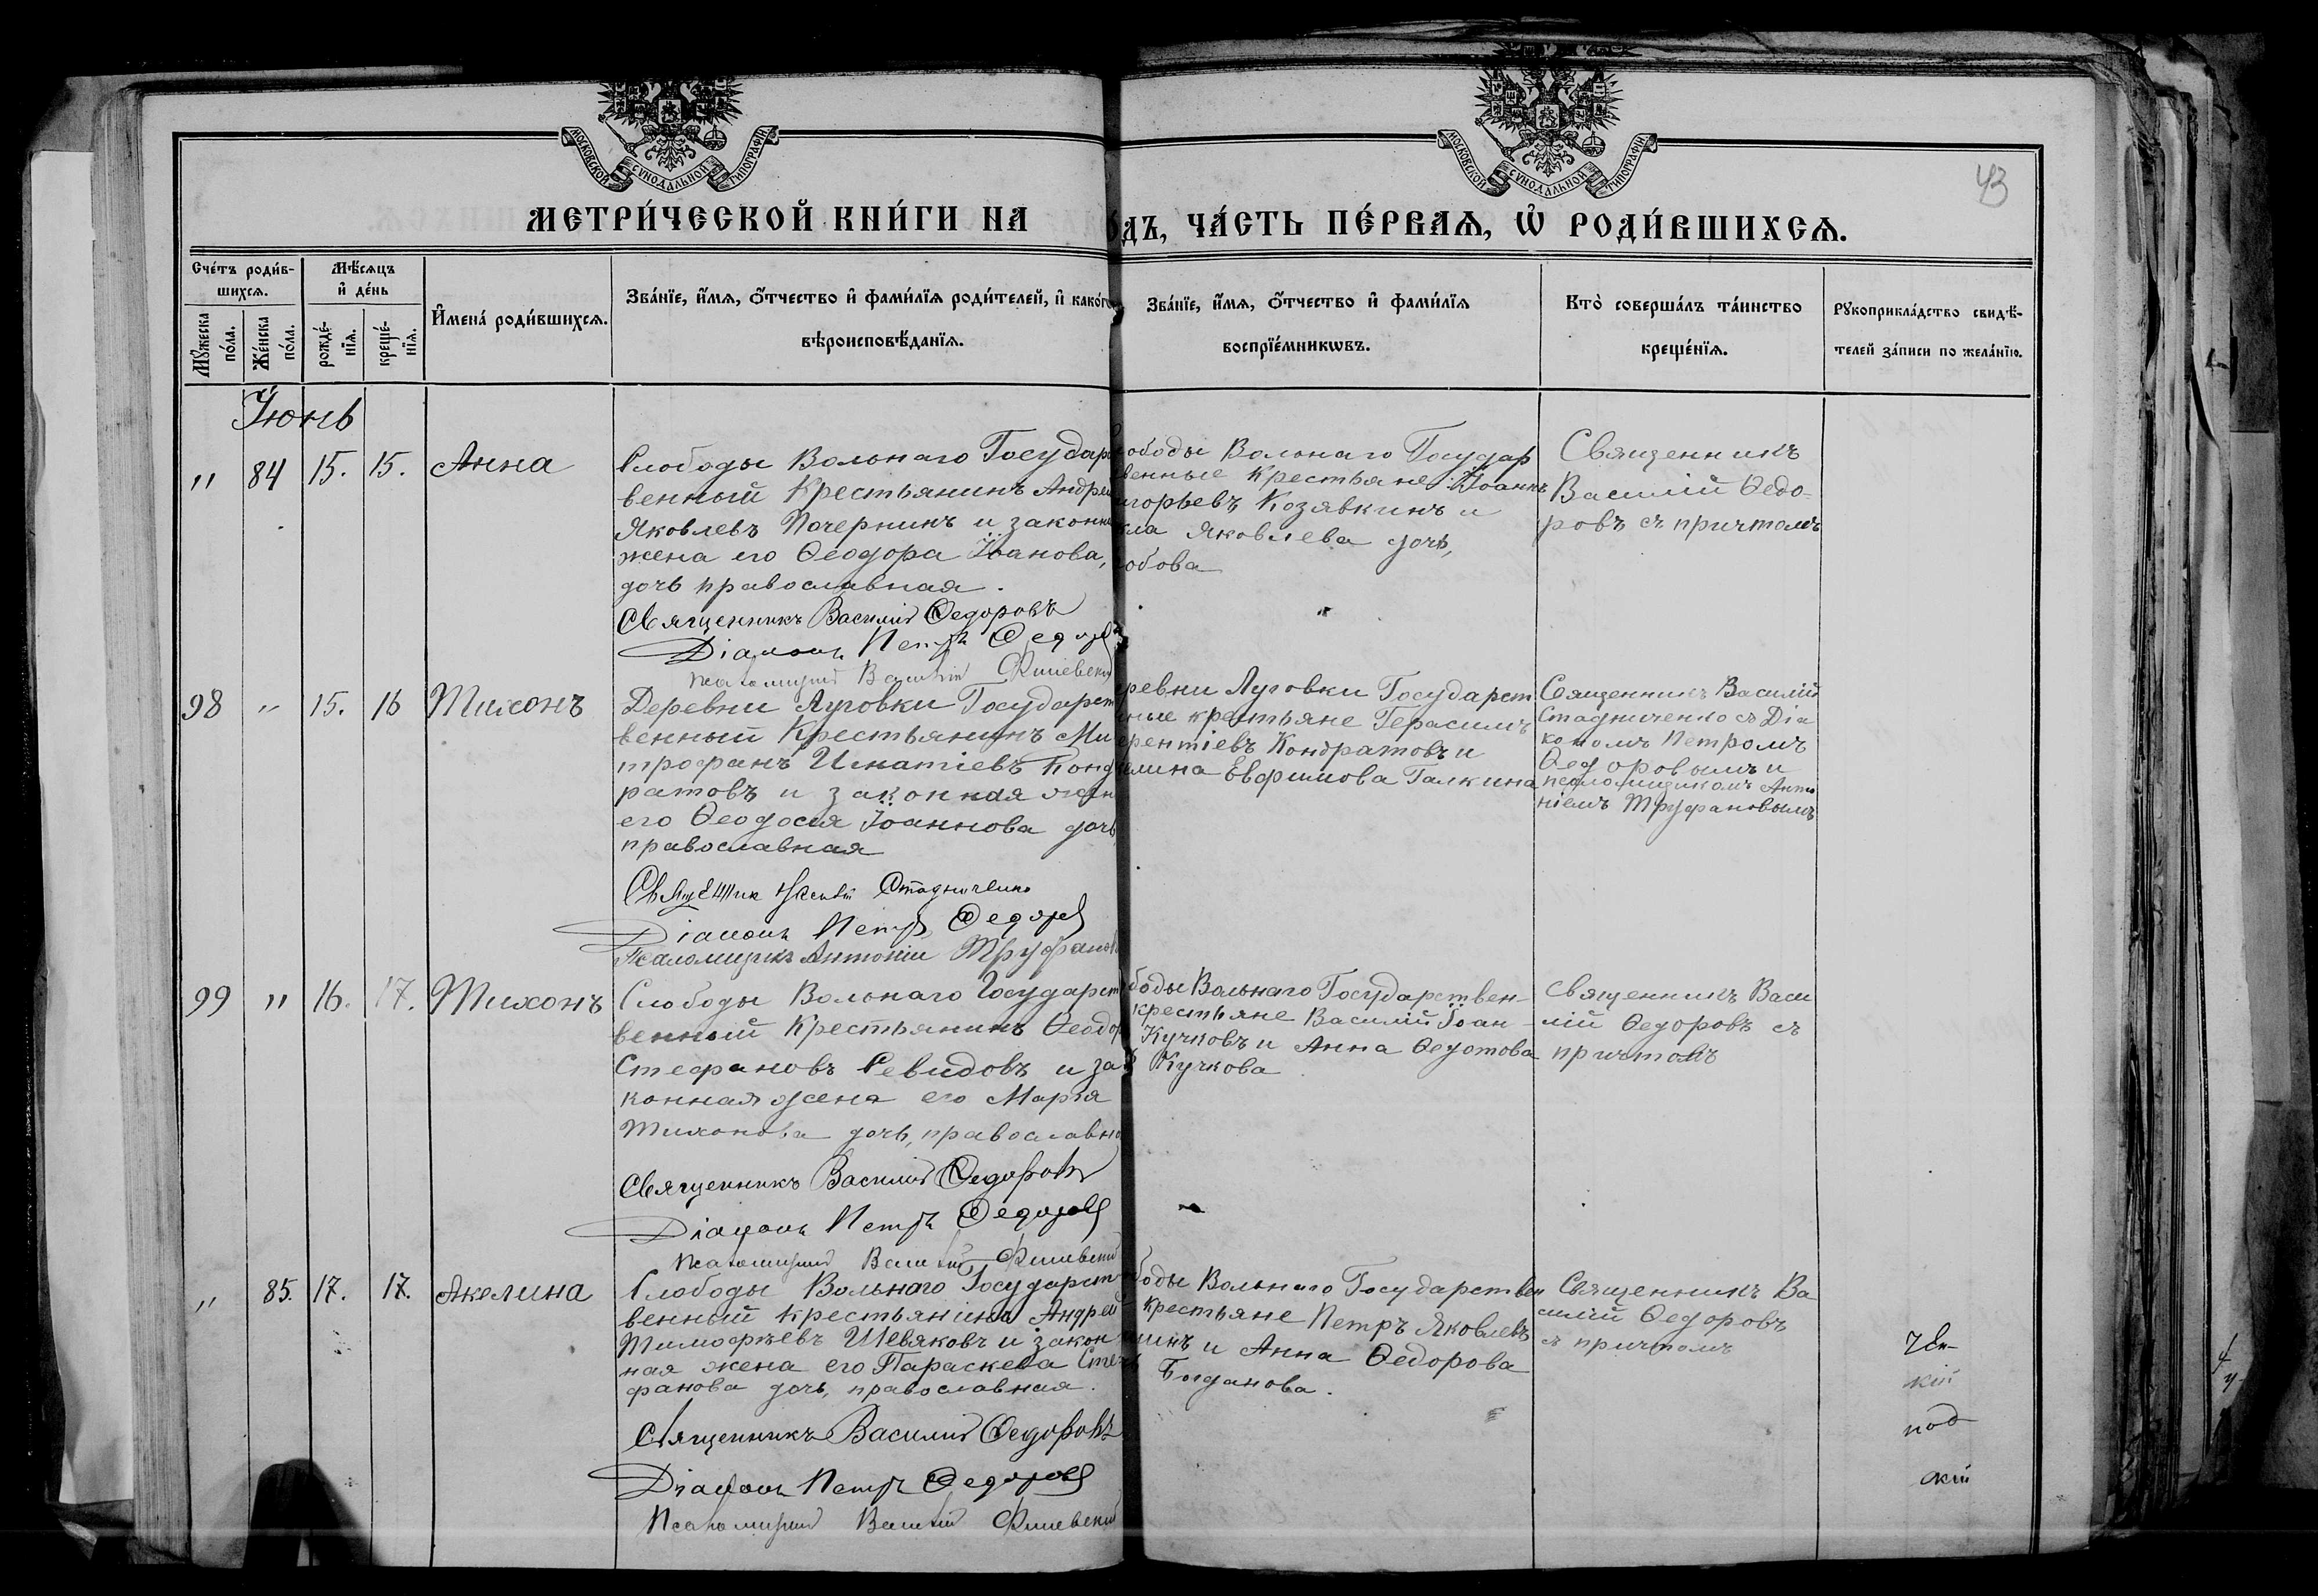 МОСКОВСКОЙ СѴНОДАЛЬНОЙ ТИПОГРАФІИ
МОСКОВСКОЙ СѴНОДАЛЬНОЙ ТИПОГРАФІИ
43
МЕТРИ́ЧЕСКОЙ КНИ́ГИ НА
ДЪ, ЧА́СТЬ ПЕ́РВАѦ, Ѡ РОДИ́ВШИХСѦ.
Сче́тъ роди́в-
шихсѧ.
Мꙋ́жеска
по́ла.
Же́нска
по́ла.
Мѣ́сѧцъ
и҆ де́нь
рожде́-
нїѧ.
креще́-
нїѧ.
И҆мена́ роди́вшихсѧ.
Зва́нїе, и҆́мѧ, ѻ҆́тчество и҆ фами́лїѧ роди́телей, и҆ како́гѡ
вѣроисповѣ́данїѧ.
Зва́нїе, и҆́мѧ, ѻ҆́тчество и҆ фами́лїѧ
воспрїе́мникѡвъ.
Кто̀ соверша́лъ та́инство
креще́нїѧ.
Рꙋкоприкла́дство свидѣ́-
телей за́писи по жела́нїю.
Іюнь
" 84 15. 15. Анна
Слободы Вольнаго Государ
венный Крестьянинъ Андрей
Яковлевъ Почернинъ и законн
жена его Ѳеодора Іоанова,
дочь православная.
Священникъ Василій Ѳедоровъ
Діаконъ Петръ Ѳедоров
Псаломщикъ Василій
ободы Вольнаго Государ
венные Крестьяне Іоаннъ
игорьевъ Козявкинъ и
кла Яковлева дочь,
обова
Священникъ
Василій Ѳедо-
ровъ съ причтомъ
98 " 15. 16 Тихонъ
Деревни Луговки Государст
венный Крестьянинъ Ми
трофанъ Игнатіевъ Конд
ратовъ и законная жен
его Ѳеодосія Іоаннова дочь
православная
Священник Василій Стадниченко
Діаконъ Петръ Ѳедоров
Псаломщикъ Антоній Труфанов
ревни Луговки Государст
ные крестьяне Герасимъ
ерентіевъ Кондратовъ и
елина Евфимова Галкина
Священникъ Василій
Стадниченко съ Діа
кономъ Петромъ
Ѳедоровымъ и
псаломщикомъ Анто
ніемъ Труфановымъ
99 " 16. 17. Тихонъ
Слободы Вольнаго Государст
венный Крестьянинъ Ѳеодор
Стефановъ Севидовъ и за
конная жена его Марія
Тихонова дочь, православно
Священникъ Василій Ѳедоровъ
Діаконъ Петръ Ѳедоров
Псаломщикъ Василій
боды Вольнаго Государствен-
крестьяне Василій Іоан-
Кучковъ и Анна Ѳедотова
Кучкова
Священникъ Васи
лій Ѳедоровъ съ
причтомъ
" 85. 17. 17. Акелина
Слободы Вольнаго Государст
венный крестьянинъ Андрей
Тимофѣевъ Шевяковъ и закон
ная жена его Параскева Сте
фанова дочь, православная.
Священникъ Василій Ѳедоровъ
Діаконъ Петръ Ѳедоров
Псаломщикъ Василій
боды Вольнаго Государствен
крестьяне Петръ Яковлевъ
шинъ и Анна Ѳедорова
Богданова.
Священникъ Ва
силій Ѳедоровъ
съ причтомъ
кій
под
кій